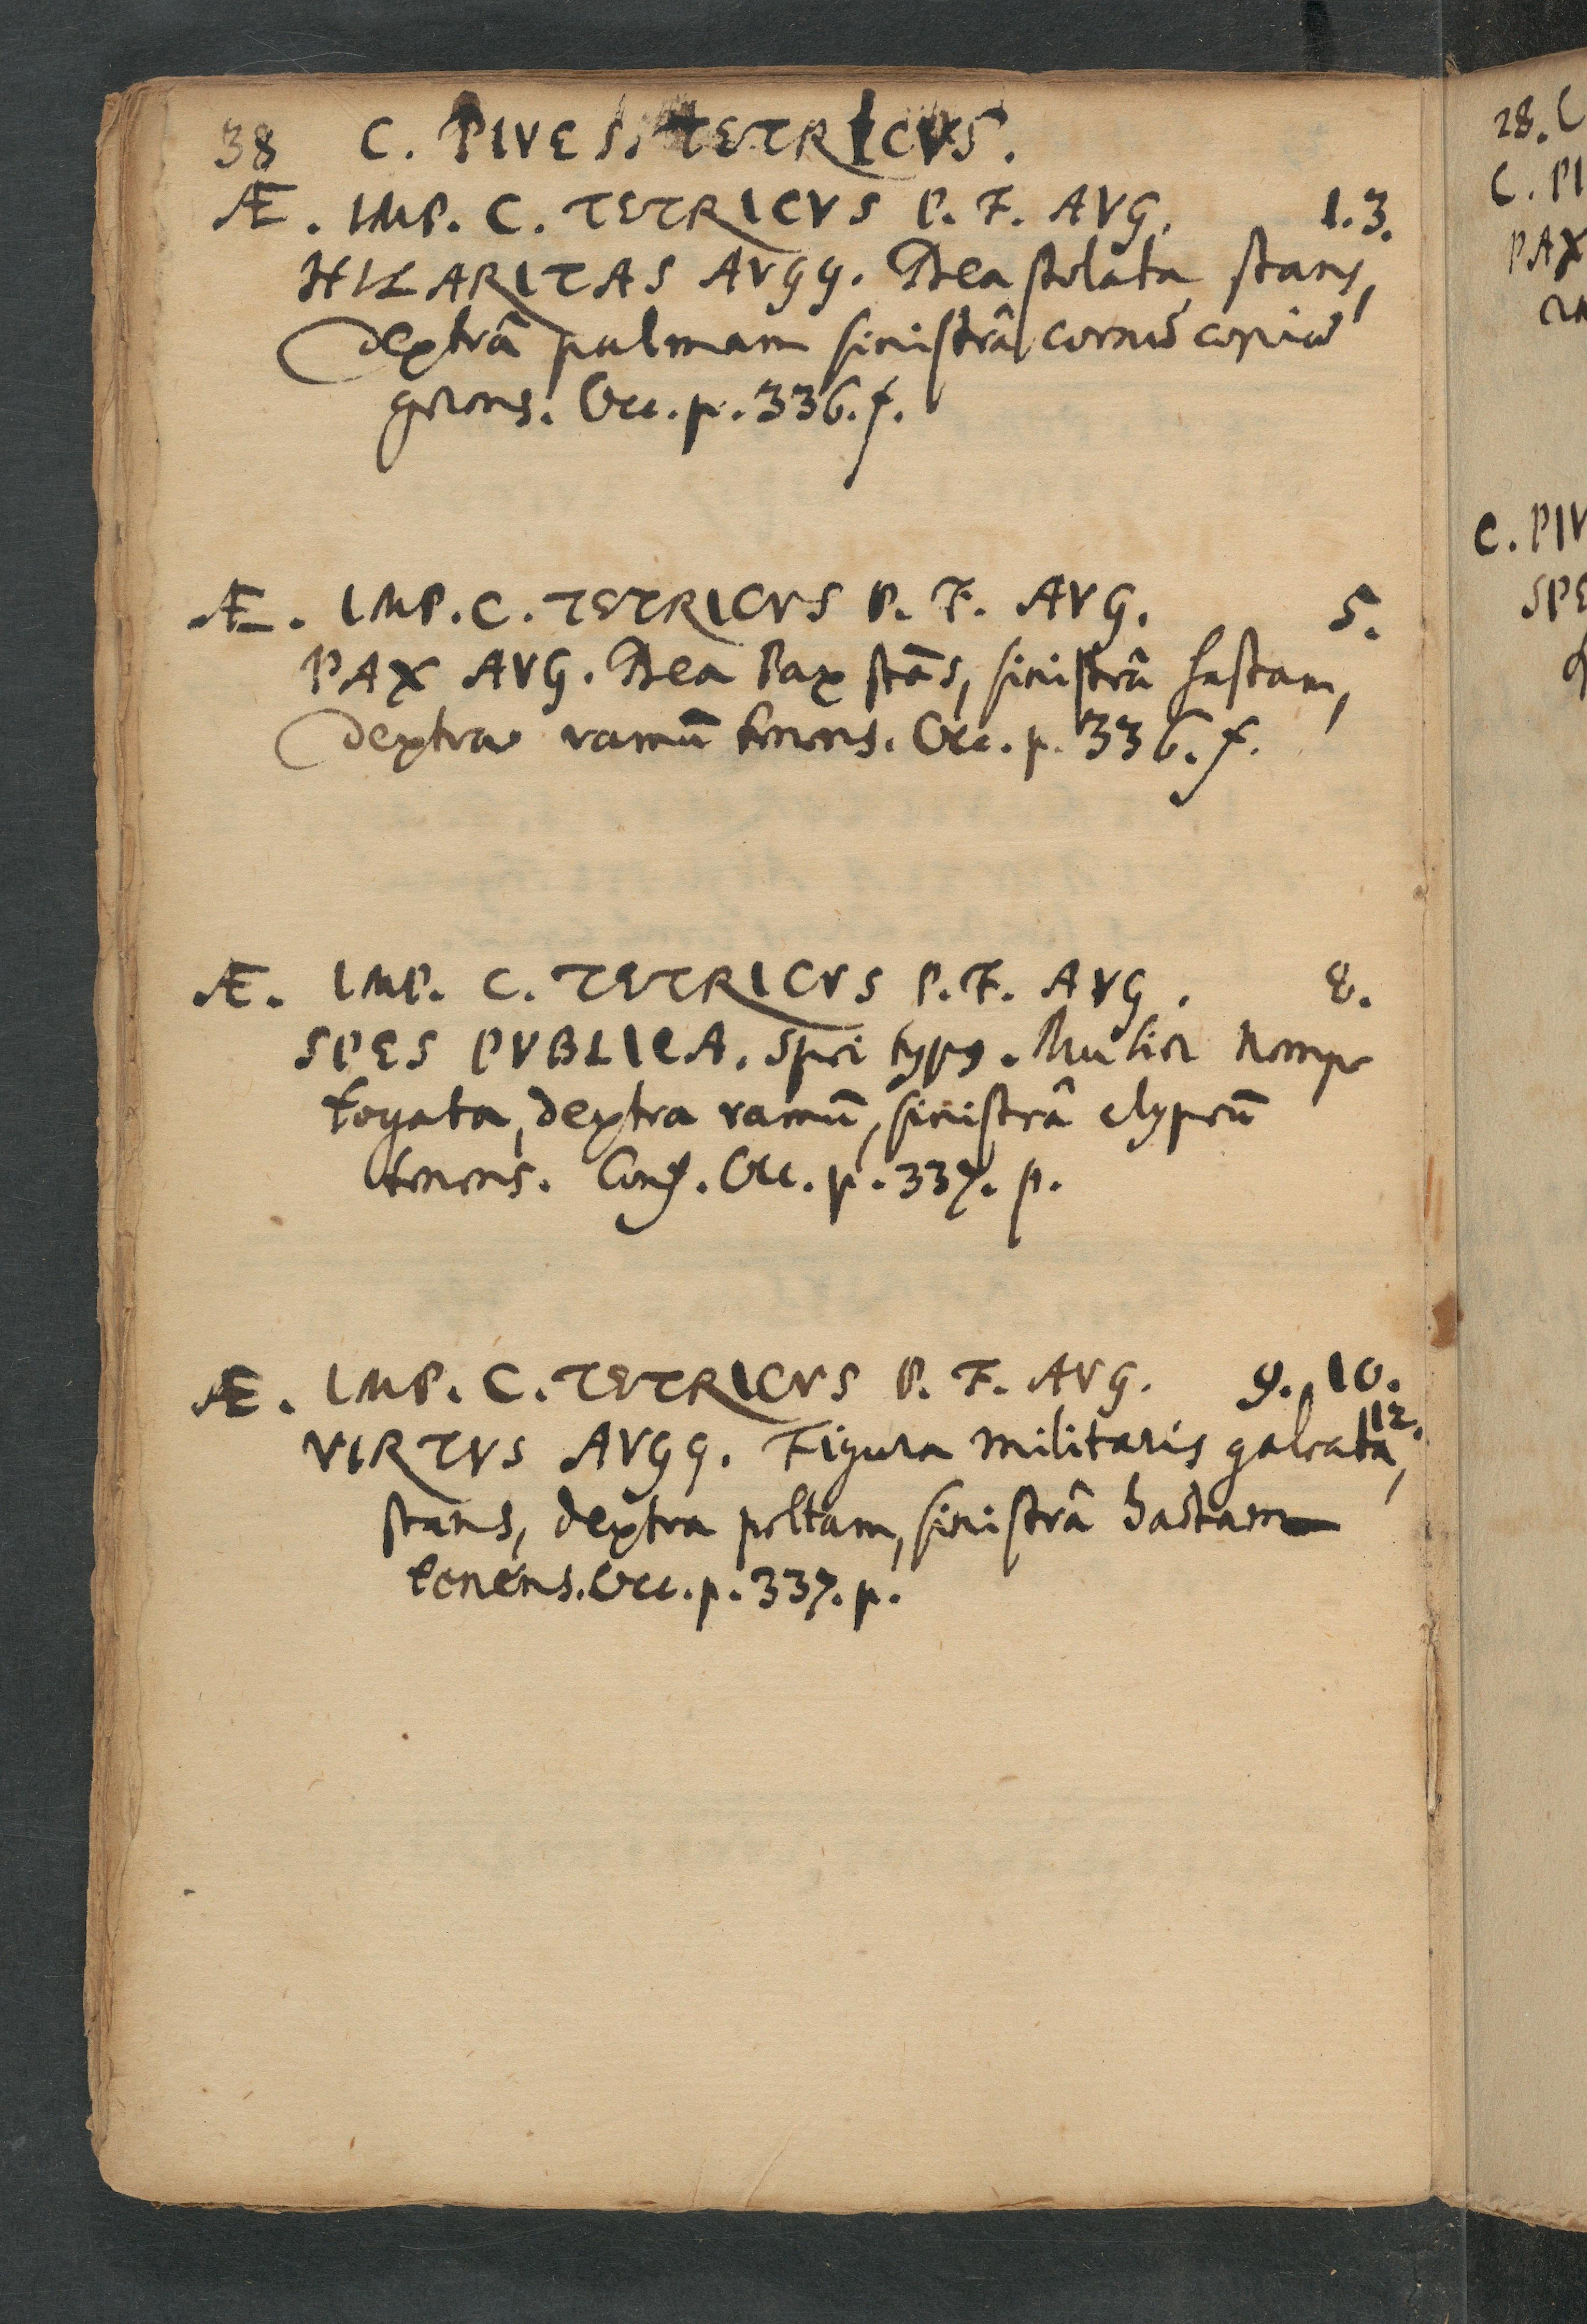 38 C. PIVES. TETRICVS.
Æ. IMP. C. TETRICVS P. F. AVG. 1. 3.
HILARITAS AVGG. Dea stolata stans,
dextrâ palmam sinistrâ cornu copiæ
gerens. Occ. p. 336. f.
Æ. IMP. C. TETRICVS P. F. AVG. 5.
PAX AVG. Dea Pax stãs, sinistrâ hastam,
dextra ramũ tenens. Occ. p. 336. f.
Æ. IMP. C. TETRICVS P. F. AVG. 8.
SPES PVBLICA. Spei typꝰ. Mulier nempe
togata, dextra ramũ, sinistrâ clypeũ
tenens. Conf. Occ. p. 337. p.
Æ. IMP. C. TETRICVS P. F. AVG. 9. 10.
12.
VIRTVS AVGG. Figura militaris galeata,
stans, dextra peltam, sinistrâ hastam
tenens. Occ. p. 337. p.
28. C
C. PI
PAX
ra
C. PIV
SPE